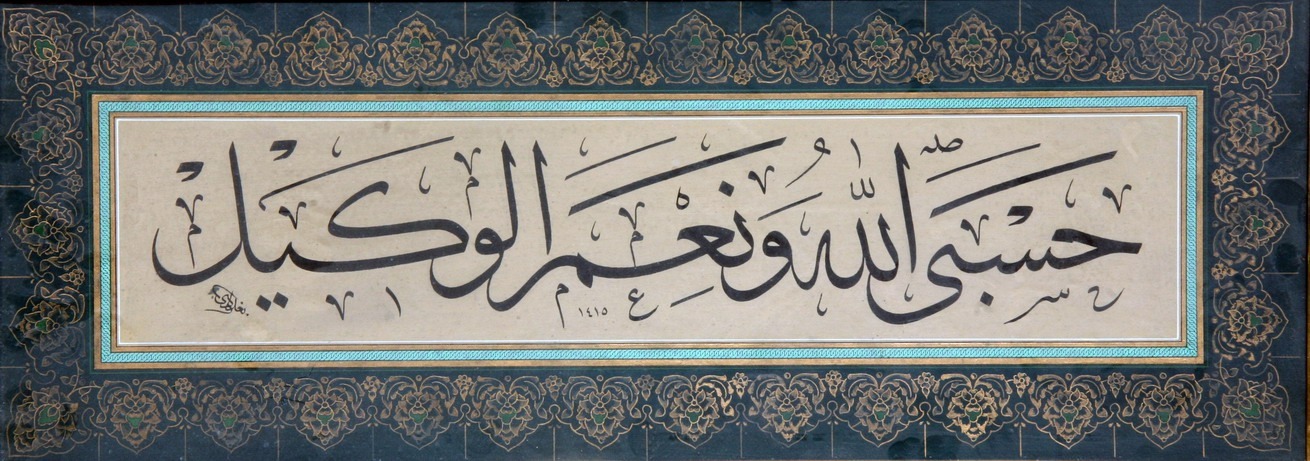 حَسْبِيَ اللّٰهُ وَنِعْمَ الْوَكِيلُ
١٤١٥